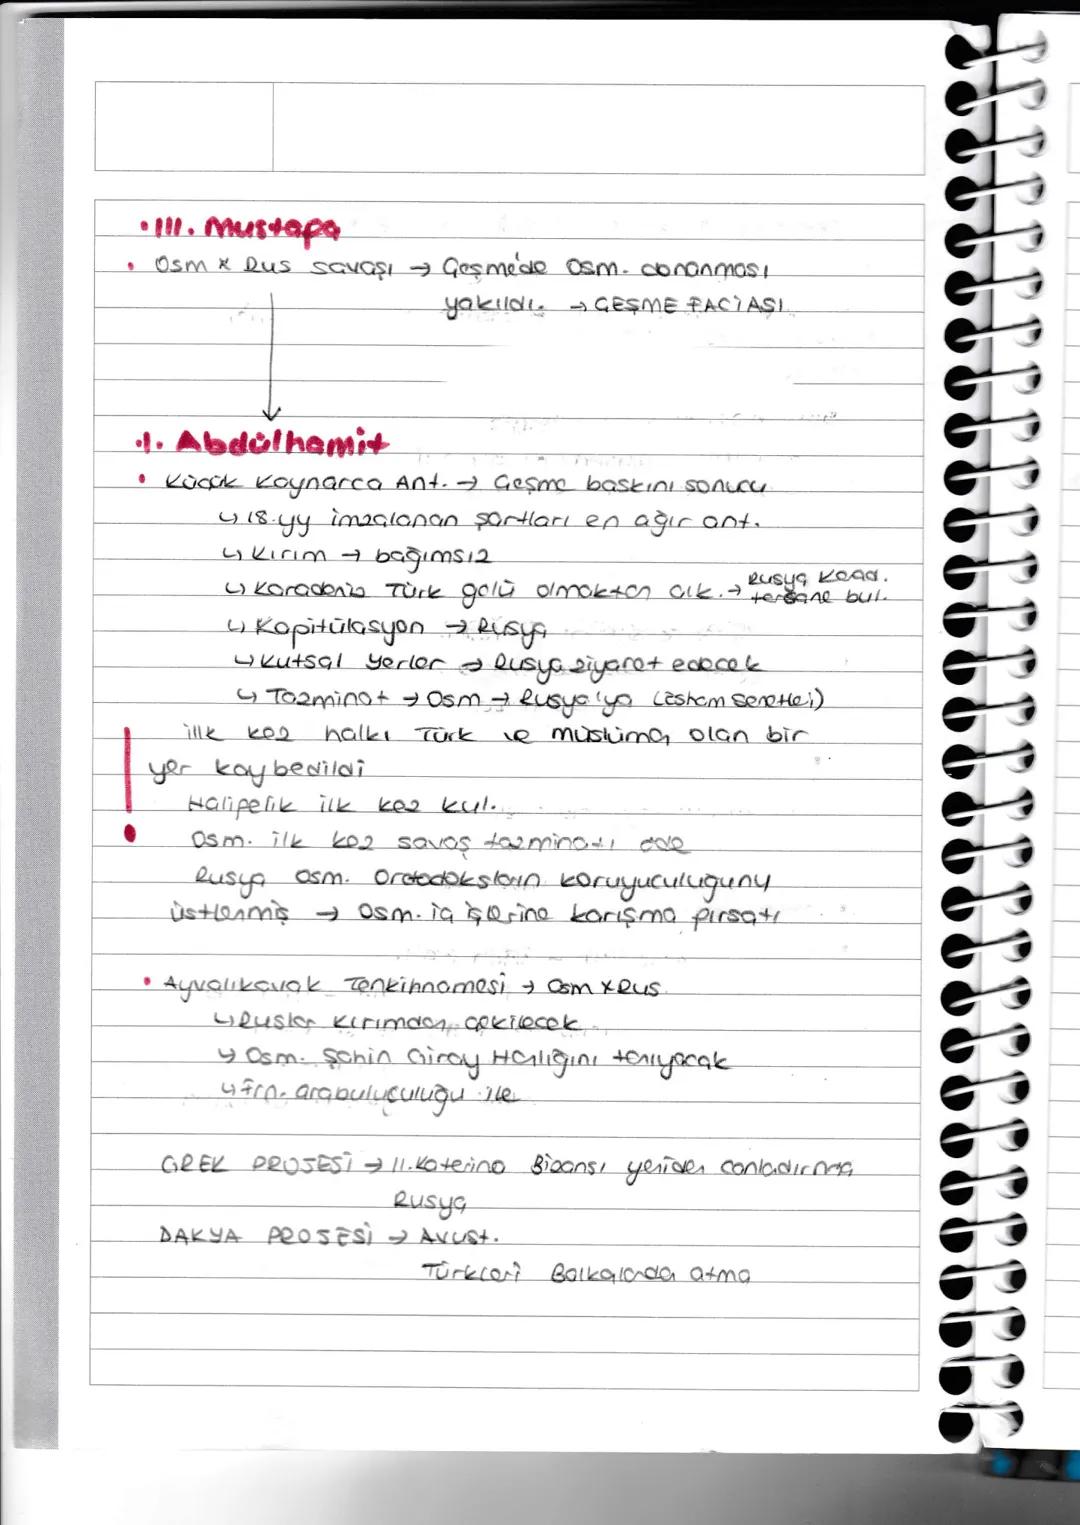 • III. Mustafa
• Osm x Rus savaşı → Çeşme'de Osm. donanması
yakıldı. → ÇEŞME FACİASI
• I. Abdülhamit
• Küçük Kaynarca Ant. → Çeşme baskını sonucu
↳ 18.yy imzalanan şartları en ağır ant.
↳ Kırım → bağımsız
↳ Karadeniz Türk gölü olmaktan çık. → Rusya Karad. tersane bul.
↳ Kapitülasyon → Rusya
↳ Kutsal Yerler → Rusya ziyaret edecek
↳ Tazminat → Osm → Rusya'ya
illk kez halkı Türk ve müslüman olan bir
yer kaybedildi
Halifelik ilk kez kul.
Osm. ilk kez savaş tazminatı öde
Rusya Osm. Ortodoksların koruyuculuğunu
üstlenmiş → Osm. iç işlerine karışma fırsatı
• Aynalıkavak Tenkihnamesi → Osm x Rus
↳ Ruslar Kırımdan çekilecek
↳ Osm. Şahin Giray Hanlığını tanıyacak
↳ Frn. arabuluculuğu ile
GREK PROJESİ → II. Katerina Bizansı yeniden canladırma
Rusya
DAKYA PROJESİ → Avust.
Türkleri Balkalarda atma